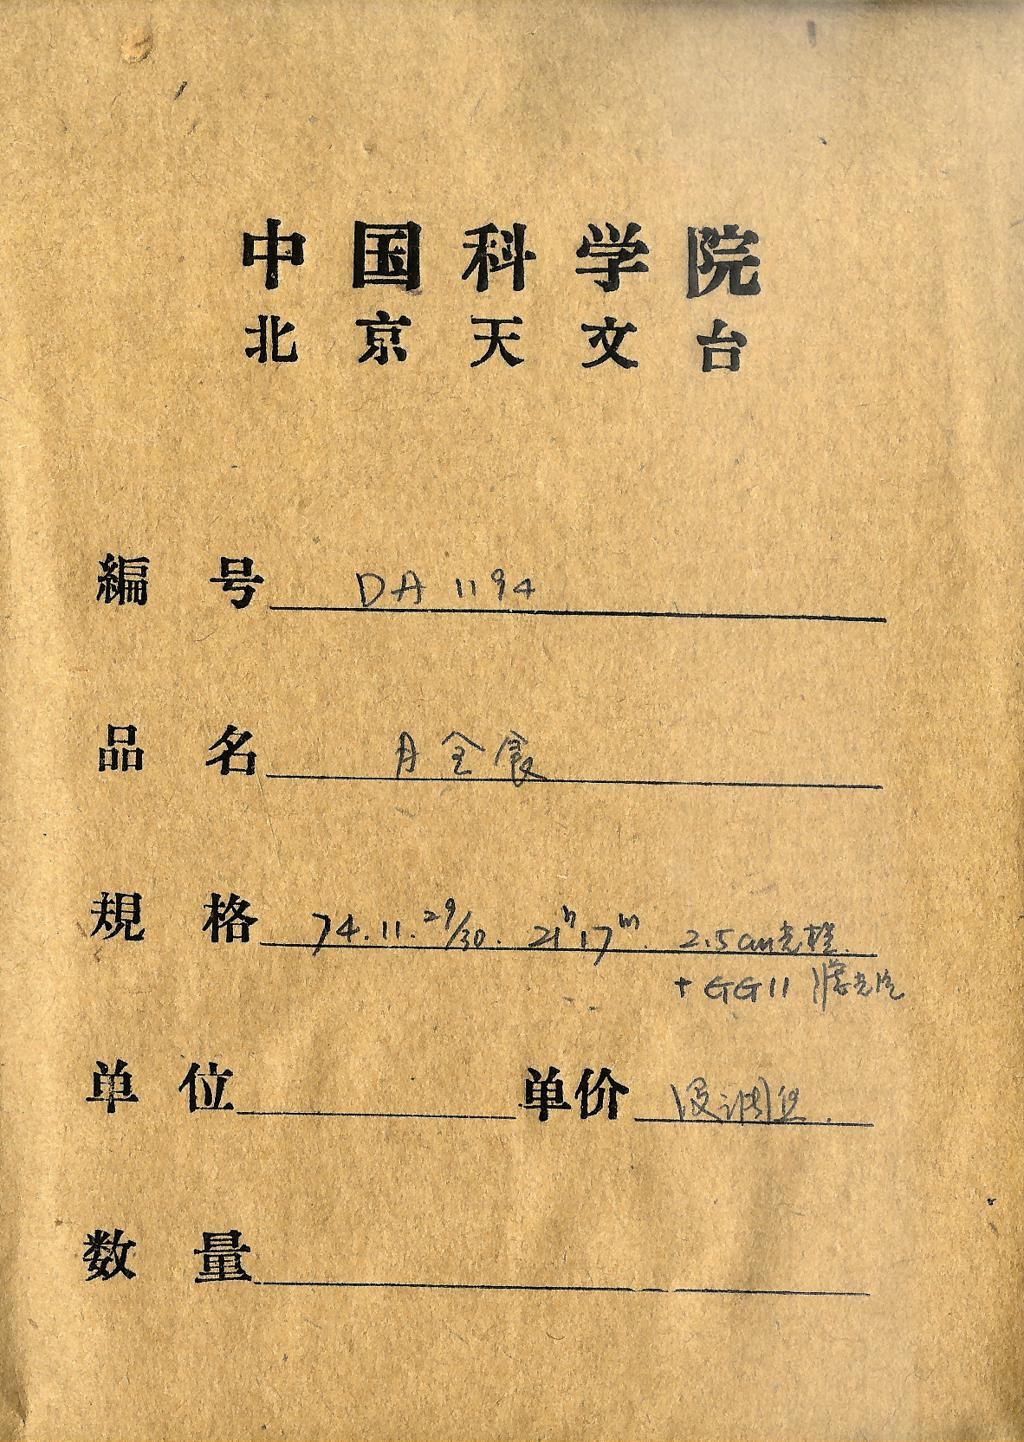 中国科学院
北京天文台
編号 DA 1194
品名 月全食
規格 74.11.29/30. 21h17m. 2.5cm光栏.
+ GG11 滤光片
单位 单价 没调焦.
数量